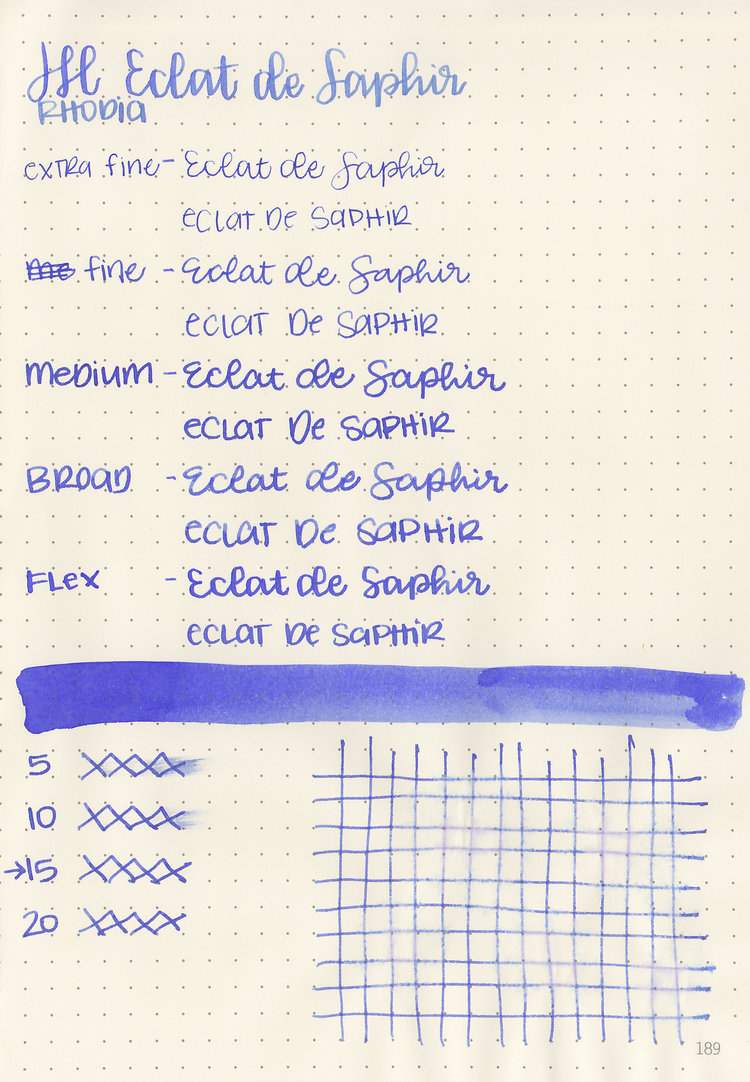 JH Eclat de Saphir
RHODIA
extra fine - Eclat de Saphir
ECLAT DE SAPHIR
me fine - Eclat de Saphir
ECLAT DE SAPHIR
MEDIUM - Eclat de Saphir
ECLAT DE SAPHIR
BROAD - Eclat de Saphir
ECLAT DE SAPHIR
FLEX - Eclat de Saphir
ECLAT DE SAPHIR
5 XXXX
10 XXXX
→15 XXXX
20 XXXX
189